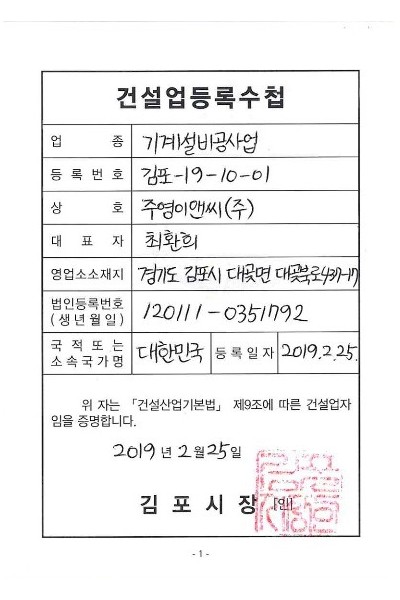 건설업등록수첩
업 종 기계설비공사업
등 록 번 호 김포-19-10-01
상 호 주영이앤씨(주)
대 표 자 최환희
영업소소재지 경기도 김포시 대곶면 대곶북로437-17
법인등록번호
(생년월일) 120111-0351792
국 적 또 는
소속국가명 대한민국 등록일자 2019.2.25.
위 자는 「건설산업기본법」 제9조에 따른 건설업자
임을 증명합니다.
2019년 2월 25일
김 포 시 장 [인]
- 1 -